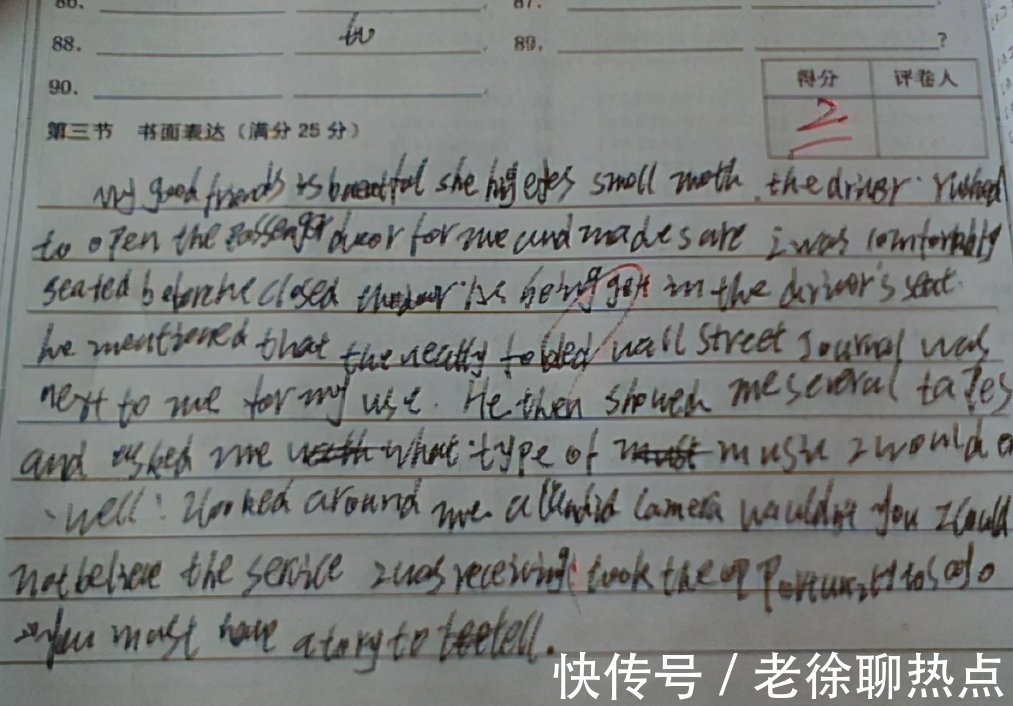 86. 87.
88. to 89. ?
90.
得分 评卷人
2
第三节 书面表达(满分25分)
My good friends is beautiful she big eyes small moth. the driver rushed
to open the passenger door for me and made sare i was comfortably
seated before he closed the door. As being got in the driver's seat.
he mentioned that the neatly folded wall street Journal was
next to me for my use. He then showed me several tapes
and asked me what type of music I would
well! I looked around me. a candid camera wouldn't you I could
not believe the service I was receiving took the opportunity to
you must have a tory to tell.
快传号/老徐聊热点